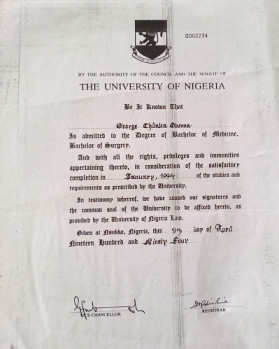 D002234
BY THE AUTHORITY OF THE COUNCIL AND THE SENATE OF
THE UNIVERSITY OF NIGERIA
Be It Known That
George Chinica
Is admitted to the Degree of Bachelor of Medicine,
Bachelor of Surgery.
And with all the rights, privileges and immunities
appertaining thereto, in consideration of the satisfactory
completion in January, 1994 of the studies and
requirements as prescribed by the University.
In testimony whereof, we have caused our signatures and
the common seal of the University to be affixed hereto, as
provided by the University of Nigeria Law.
Given at Nsukka, Nigeria, this 9th day of April
Nineteen Hundred and Ninety Four
VICE CHANCELLOR
REGISTRAR